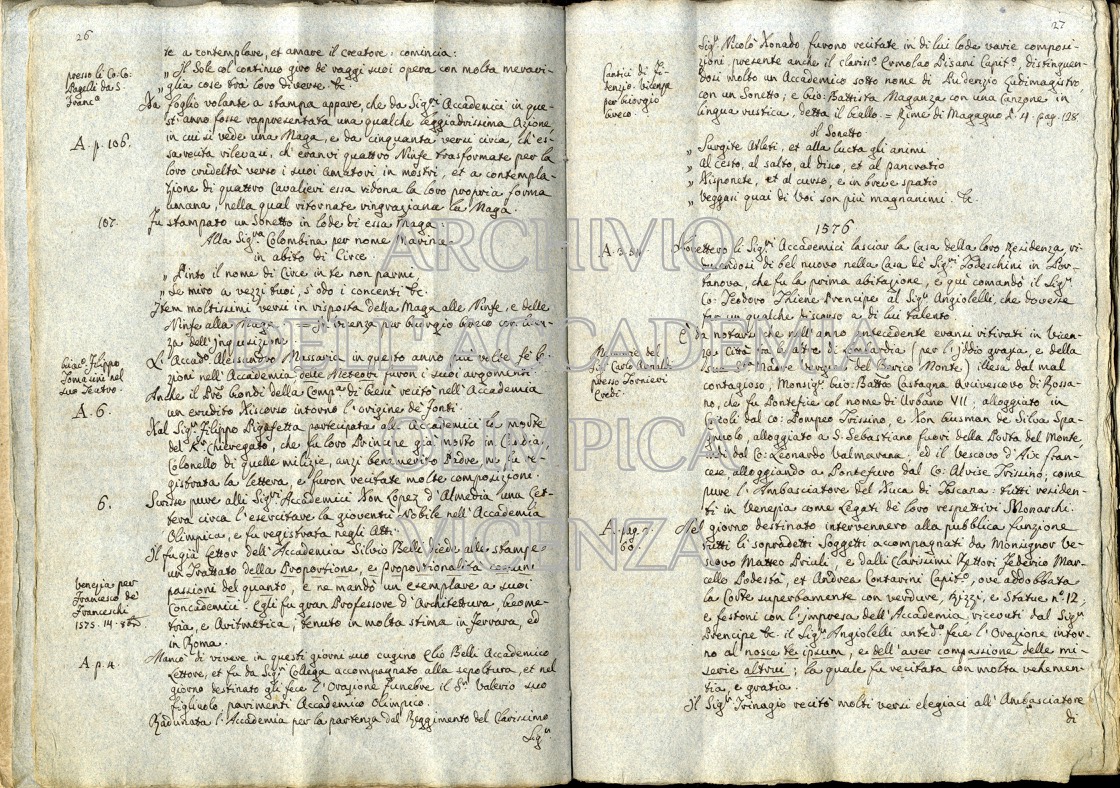 26
te a contemplare, et amare il creatore: comincia:
„ Il Sole col continuo giro de raggi suoi opera con molta meravi-
„ glia cose trà loro diverse &c.
presso li Co: Co:
Angelli da S.
Franc.º
Da foglio volante a stampa appare, che da Sig.ri Accademici in que-
st'anno fosse rappresentata una qualche leggiadrissima Azione,
A. p. 106.
in cui si vede una Maga, e da cinquanta versi circa, ch'es-
sa recita rilevasi, ch'eranvi quattro Ninfe trasformate per la
loro crudeltà verso i suoi Amatori in mostri, et a contempla-
zione di quattro Cavalieri essa ridona la loro propria forma
umana, nella qual ritornate ringraziano la Maga.
107.
Fu stampato un Sonetto in lode di essa Maga:
Alla Sig.ra Colombina per nome Marina
in abito di Circe
„ Pinto il nome di Circe in te non parmi,
„ Se miro a vezzi tuoi, s'odo i concenti &c.
Item moltissimi versi in risposta della Maga alle Ninfe, e delle
Ninfe alla Maga. In Vicenza per Giorgio Greco con licen-
za dell'Inquisizione.
Giac.º Filippo
Tomasini nel
suo Teatro.
L'Accad.º Alessandro Massaria in questo anno più volte fè le-
zioni nell'Accademia delle Meteore furon i suoi argomenti.
Anche il Pre Biondi della Comp.a di Giesù recitò nell'Accademia
A. 6.
un erudito Discorso intorno l'origine de' fonti.
Dal Sig.r Filippo Pigafetta partecipata all'Accademici la morte
del K.r Chieregato, che fu loro Principe già morto in Candia,
Colonello di quelle milizie, anzi benemerito Padre, ne fu re-
gistrata la lettera, e furon recitate molte composizioni.
6.
Scrisse pure alli Sig.ri Accademici Don Lopez d'Almedia una Let-
tera circa l'esercitare la gioventù Nobile nell'Accademia
Olimpica, e fu registrata negli Atti.
Il fu già Lettor dell'Accademia Silvio Belli diede alle stampe
un Trattato della Proportione, e Proportionalità comuni
Venezia per
Francesco de
Franceschi
1575. 14.
passioni del quanto, e ne mandò un esemplare a suoi
Concademici. Egli fu gran Professore d'Architettura, Geome-
tria, e Aritmetica; tenuto in molta stima in Ferrara, ed
in Roma.
A p. 4.
Mancò di vivere in questi giorni suo cugino Elio Belli Accademico
Lettore, et fu da Sig.ri Collega accompagnato alla sepoltura, et nel
giorno destinato gli fece l'Orazione funebre il S.r Valerio suo
figliuolo, parimenti Accademico Olimpico.
Radunata l'Accademia per la partenza dal Reggimento del Clarissimo
Sig.r
27
Sig.r Nicolò Donado furono recitate in di lui lode varie composi-
zioni, presente anche il clariss.º Ermolao Pisani Capit.º, distinguen-
Cantici di Fi-
denzio. Vicenza
per Giorgio
Greco.
dosi molto un Accademico sotto nome di Prudenzio Ludimagistro,
con un Sonetto; e Gio: Battista Maganza con una Canzone in
lingua rustica, detta il ballo. = Rime di Magagnò P. 4. pag. 128.
Il Sonetto
„ Surgite Atleti, et alla lucta gli animi
„ Al Cesto, al salto, al disco, et al pancratio
„ Disponete, et al curso, e in breve spatio
„ Veggasi quai di voi son più magnanimi. &c.
1576
A. 3. 54.
Dovettero li Sig.ri Accademici lasciar la Casa della loro Residenza ri-
ducendosi di bel nuovo nella Casa de Sig.ri Todeschini in Por-
tanova, che fu la prima abitazione, e qui comandò il Sig.r
Co: Teodoro Thiene Prencipe al Sig.r Angiolelli, che dovesse
far un qualche discorso a di lui talento.
È da notare che nell'anno antecedente eransi ritirati in Vicen-
Memorie del
Sig.r Carlo Arnaldi
presso Tornieri
Eredi.
za Città fra le altre di Lombardia (per l'Iddio grazia, e della
Sua SS.ma Madre Vergine del Berico Monte) illesa dal mal
contagioso; Monsig.r Gio: Batta Castagna Arcivescovo di Rossa-
no, che fu Pontefice col nome di Urbano VII, alloggiato in
Cricoli dal Co: Pompeo Trissino, e Don Gusman de Silva Spa-
gnuolo, alloggiato a S. Sebastiano fuori della Porta del Monte
dal Co: Leonardo Valmarana; ed il Vescovo d'Aix Fran-
cese, alloggiando a Pontefuro dal Co: Alvise Trissino; come
pure l'Ambasciatore del Duca di Toscana: tutti residen-
ti in Venezia come Legati de' loro respettivi Monarchi.
A. pag. 9.
60.
Nel giorno destinato intervennero alla pubblica funzione
tutti li sopradetti Soggetti accompagnati da Monsignor Ve-
scovo Matteo Priuli, e dalli Clarissimi Rettori Federico Mar-
cello Podestà, et Andrea Contarini Capit.º, ove addobbata
la Corte superbamente con verdure, Rizzi, e Statue nº 12,
e festoni con l'impresa dell'Accademia, riccouti dal Sig.r
Prencipe &c. il Sig.r Angiolelli anted.º fece l'Orazione intor-
no al nosce te ipsum, e dell'aver compassione delle mi-
serie altrui; la quale fu recitata con molta vehemen-
tia, e gratia.
Il Sig.r Trinagio recitò molti versi elegiaci all'Ambasciatore
di
ARCHIVIO
DELL'ACCADEMIA
OLIMPICA
VICENZA